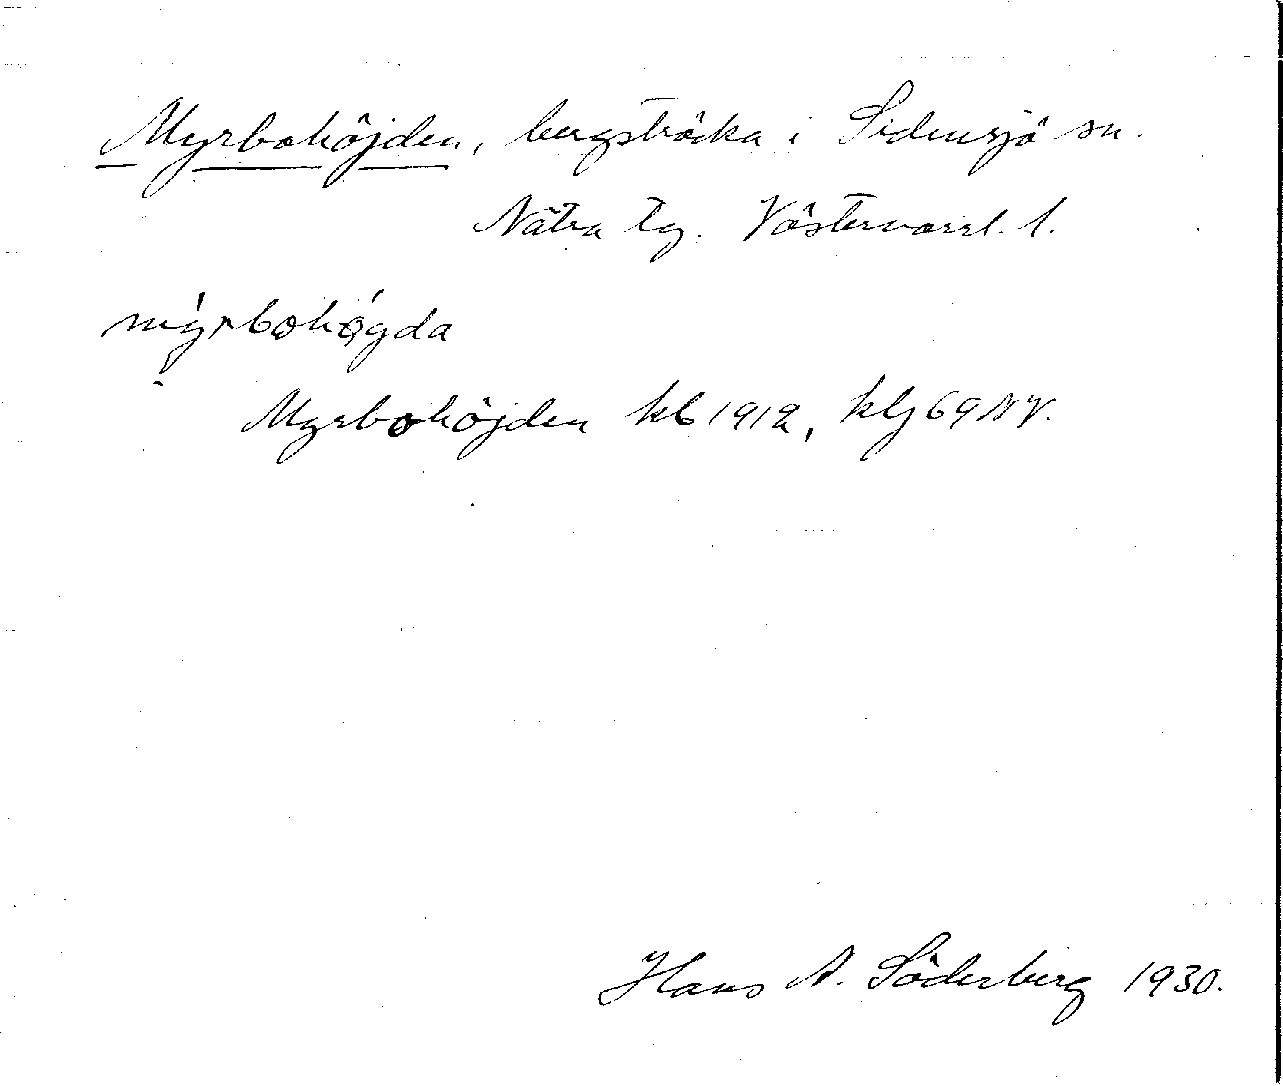 Myrbohöjden, bergsträcka i Sidensjö sn.
Nätra tg. Västernorrl. l.
mýrbohǫ́gda
Myrbohöjden kb 1912, klj 69 NV.
Hans A. Söderberg 1930.